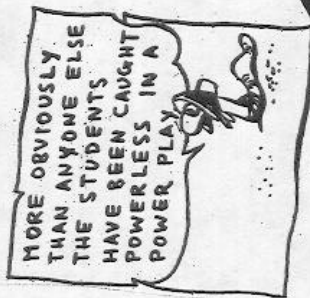 MORE OBVIOUSLY
THAN ANYONE ELSE
THE STUDENTS
HAVE BEEN CAUGHT
POWERLESS IN A
POWER PLAY